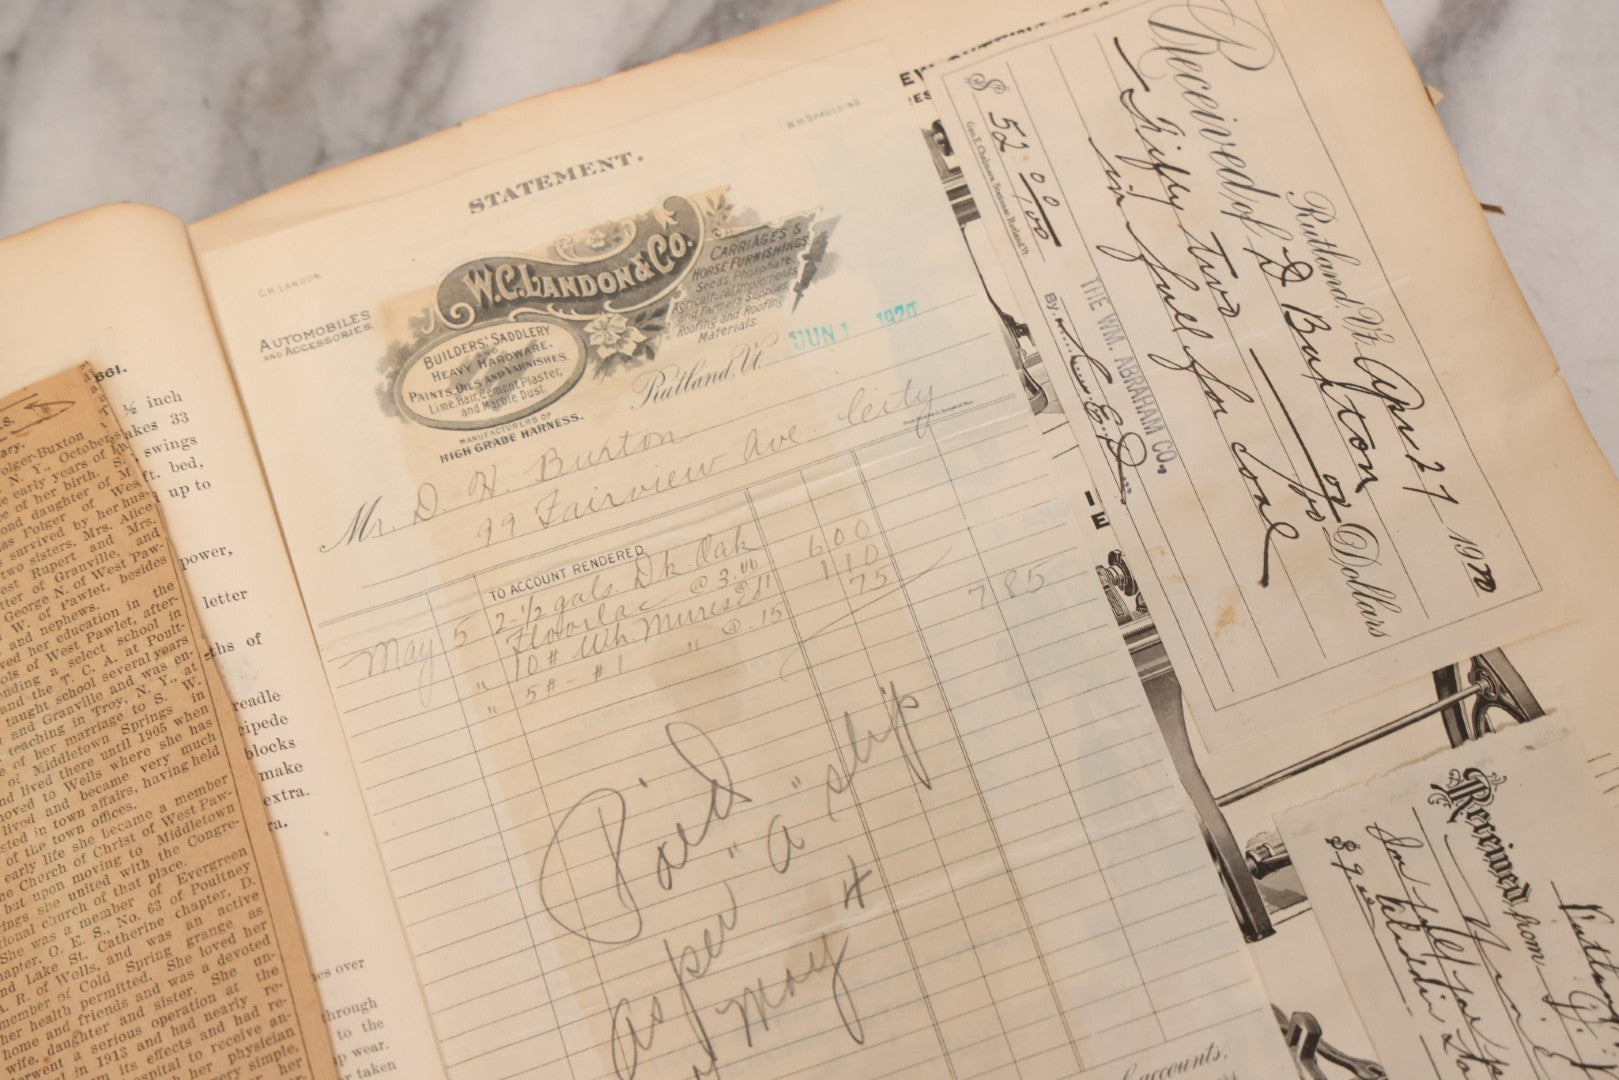 STATEMENT.
C. H. LANDON.
W. H. SPAULDING
AUTOMOBILES
AND ACCESSORIES.
W. C. LANDON & CO.
CARRIAGES &
HORSE FURNISHINGS
Seeds, Phosphate
Agricultural Implements
and Farmers Supplies
Roofing and Roofing
Materials.
BUILDERS' SADDLERY
AND
HEAVY HARDWARE.
PAINTS, OILS AND VARNISHES.
Lime, Hair, Cement, Plaster,
and Marble Dust.
MANUFACTURERS OF
HIGH GRADE HARNESS.
Rutland, Vt. JUN 1 1920
Mr. D. H. Buxton
99 Fairview Ave. City
TO ACCOUNT RENDERED
May 5 2-½ gals. Dk. Oak
Floorlac @ 3.00 600
" 10 # Wh. @ 11 110
" 5 # - #1 " @ .15 75 785
Paid
as per "a" slip
of May 4
accounts,
Rutland, Vt. April 27 1920
Received of D Buxton
Fifty two 00/100 Dollars
in full for coal
$ 52 00/100
THE WM. ABRAHAM CO.
By
Received from
$9
661.
½ inch
takes 33
swings
ft. bed,
up to
power,
letter
ths of
readle
cipede
blocks
make
extra.
ra.
es over
through
to the
p wear.
r taken
Folger-Buxton
N. Y., October
early years of
of her birth. S.
ond daughter of M
as Folger of Wes
survived by her hus-
two sisters, Mrs. Alice
est Rupert and Mrs.
tter of Granville, and
George N. of West Paw-
W. of Pawlet, besides
and nephews.
ved her education in the
ols of West Pawlet, after-
nding a select school in
and the T. C. A. at Poult-
taught school several years
and Granville and was en-
teaching in Troy, N. Y., at
e of her marriage to S. W.
of Middletown Springs in
nd lived there until 1905 when
oved to Wells where she has
lived and became very much
sted in town affairs, having held
of the town offices.
early life she became a member
he Church of Christ of West Paw-
but upon moving to Middletown
rings she united with the Congre-
tional church of that place.
She was a member of Evergreen
hapter, O. E. S., No. 63 of Poultney
nd Lake St. Catherine chapter, D.
A. R. of Wells, and was an active
member of Cold Spring grange as
her health permitted. She loved her
home and friends and was a devoted
wife, daughter and sister. She un-
derwent a serious operation at the
l in 1913 and had nearly re-
m its effects and had re-
ospital to receive an-
her physician
very simple,
her